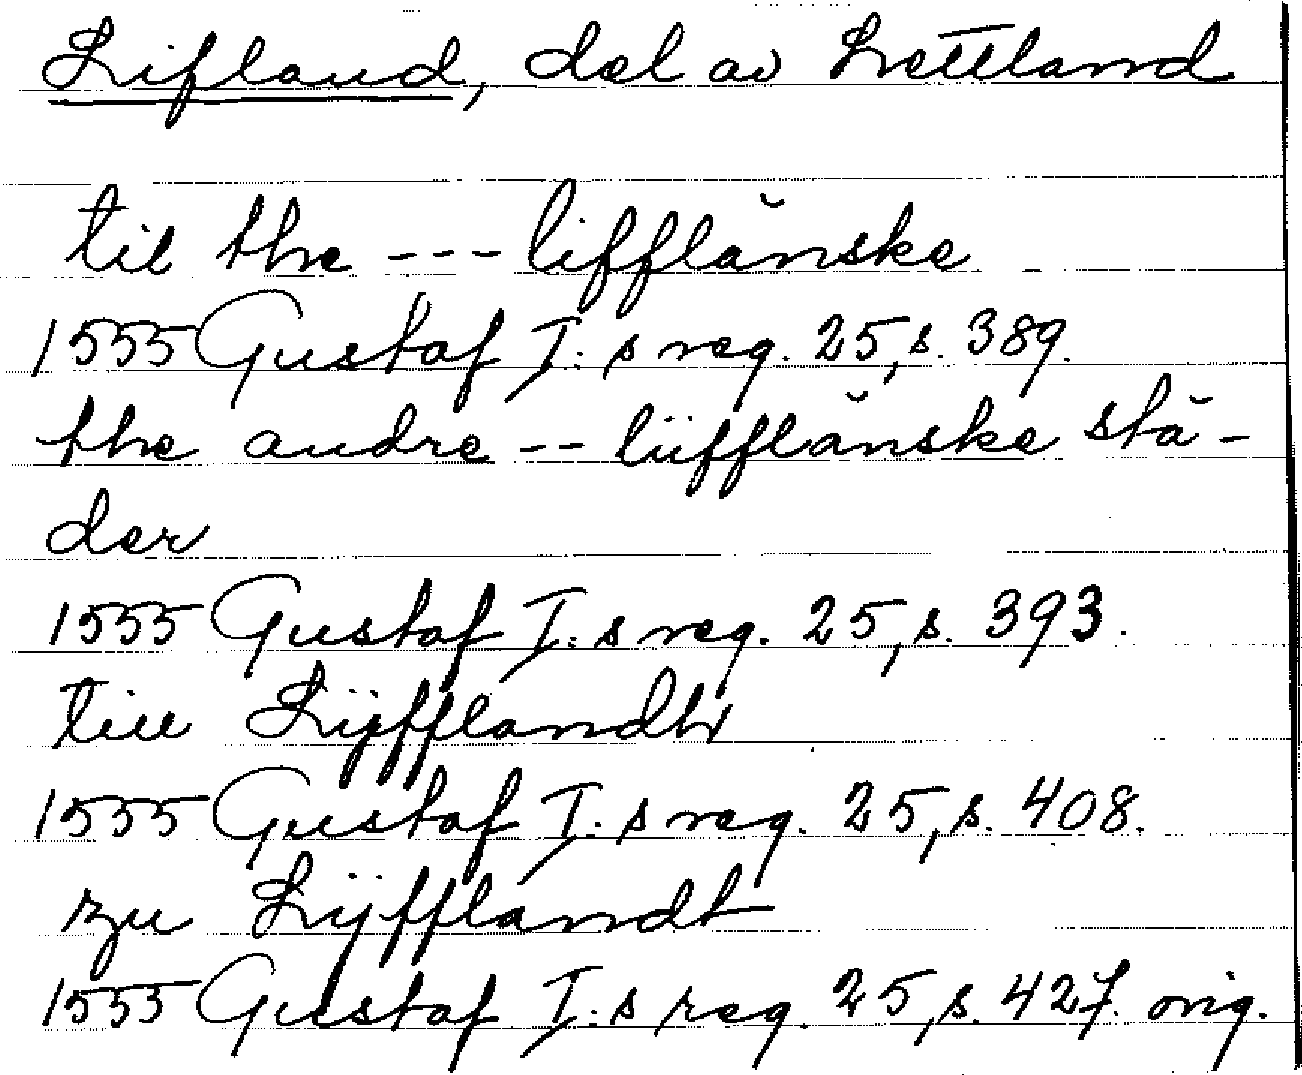 Lifland, del av Lettland
til the --- lifflänske
1555 Gustaf I:s reg. 25, s. 389.
the andre -- lüfflänske stä-
der
1555 Gustaf I:s reg. 25, s. 393.
till Lÿfflandt
1555 Gustaf I:s reg. 25, s. 408.
zu Lÿfflandt
1555 Gustaf I:s reg. 25, s. 427. orig.